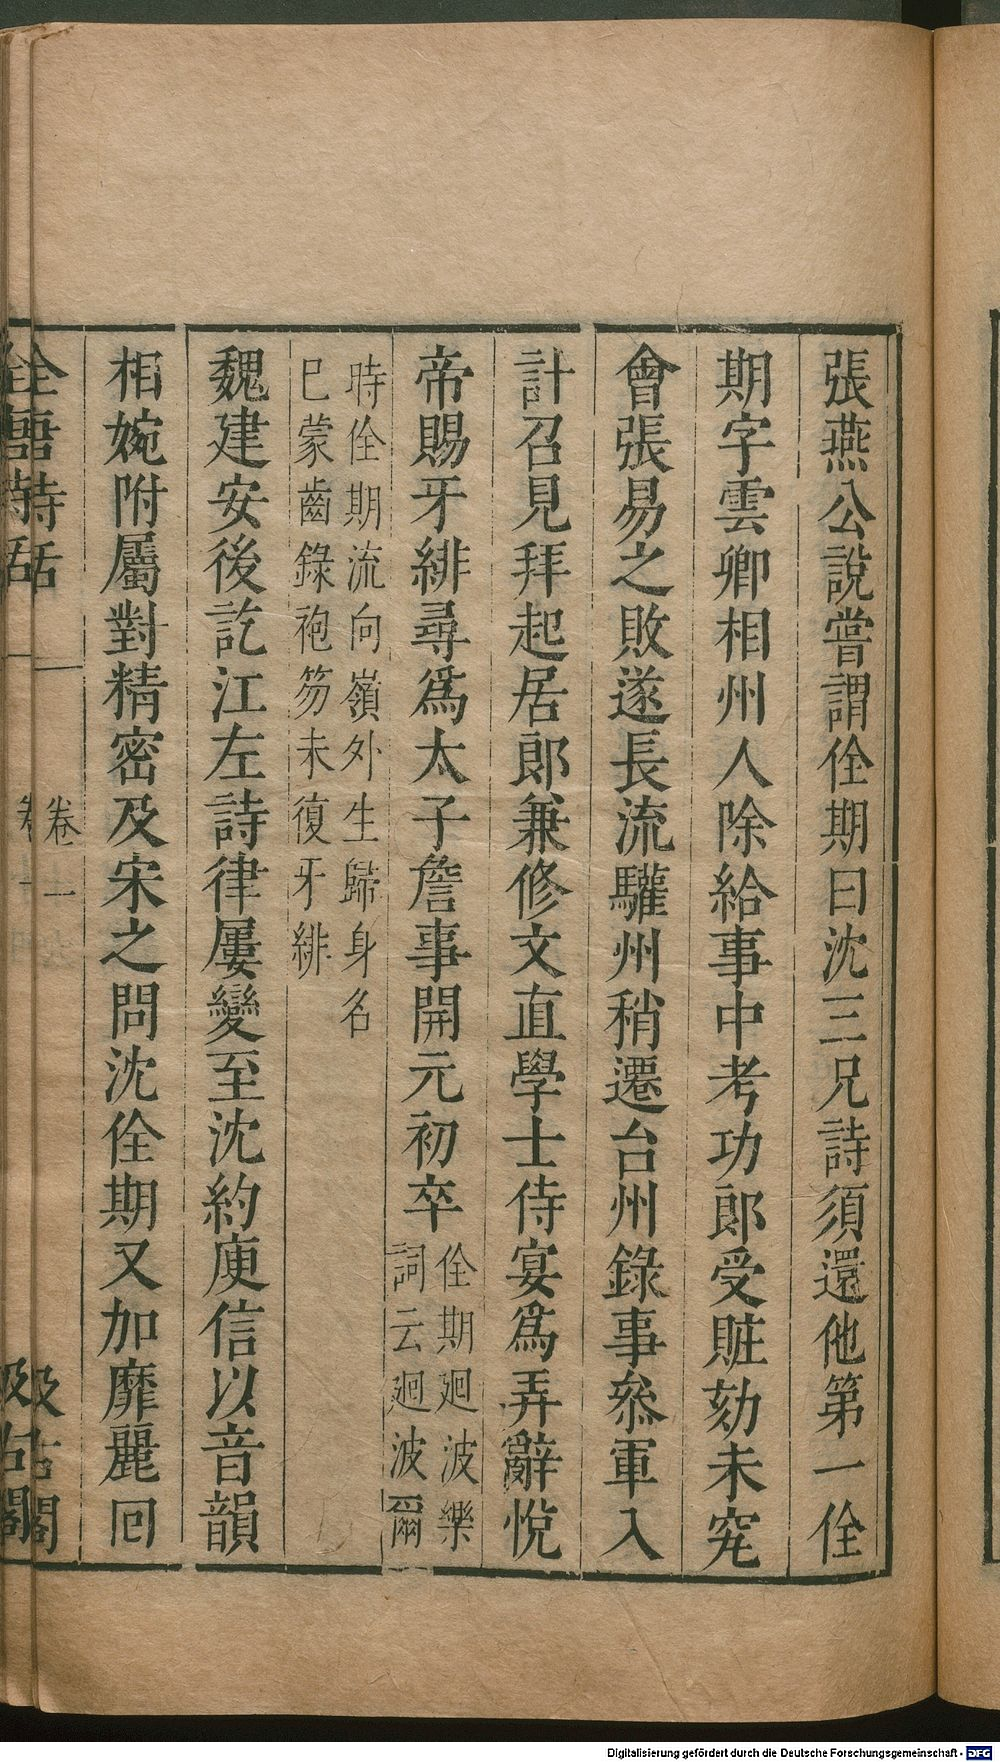 張燕公說嘗謂佺期曰沈三兄詩須還他第一佺
期字雲卿相州人除給事中考功郎受賍劾未究
會張易之敗遂長流驩州稍遷台州錄事叅軍入
計召見拜起居郎兼修文直學士侍宴爲弄辭悅
帝賜牙緋尋爲太子詹事開元初卒
佺期廻波樂
詞云廻波爾
時佺期流向嶺外生歸身名
已蒙齒錄袍笏未復牙緋
魏建安後訖江左詩律屢變至沈約庾信以音韻
相婉附屬對精密及宋之問沈佺期又加靡麗回
全唐詩話
卷一
汲古閣
Digitalisierung gefördert durch die Deutsche Forschungsgemeinschaft - DFG